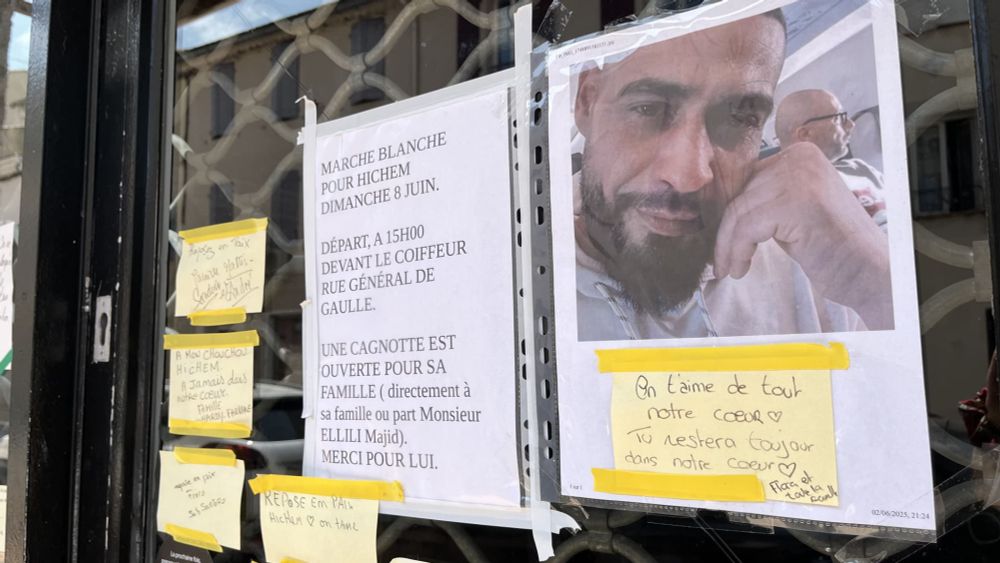 Reposez en Paix
A MON CHOUCHOU
HICHEM.
A Jamais dans
notre coeur.
FAMILLE
repose en paix
REPOSE EN PAIX
Hichem ♡ on t'aime
La prochaine fois
MARCHE BLANCHE
POUR HICHEM
DIMANCHE 8 JUIN.
DÉPART, A 15H00
DEVANT LE COIFFEUR
RUE GÉNÉRAL DE
GAULLE.
UNE CAGNOTTE EST
OUVERTE POUR SA
FAMILLE ( directement à
sa famille ou part Monsieur
ELLILI Majid).
MERCI POUR LUI.
On t'aime de tout
notre coeur ♡
Tu restera toujour
dans notre coeur ♡
Flora et
toute la
famille
1 of 1
02/06/2025, 21:24